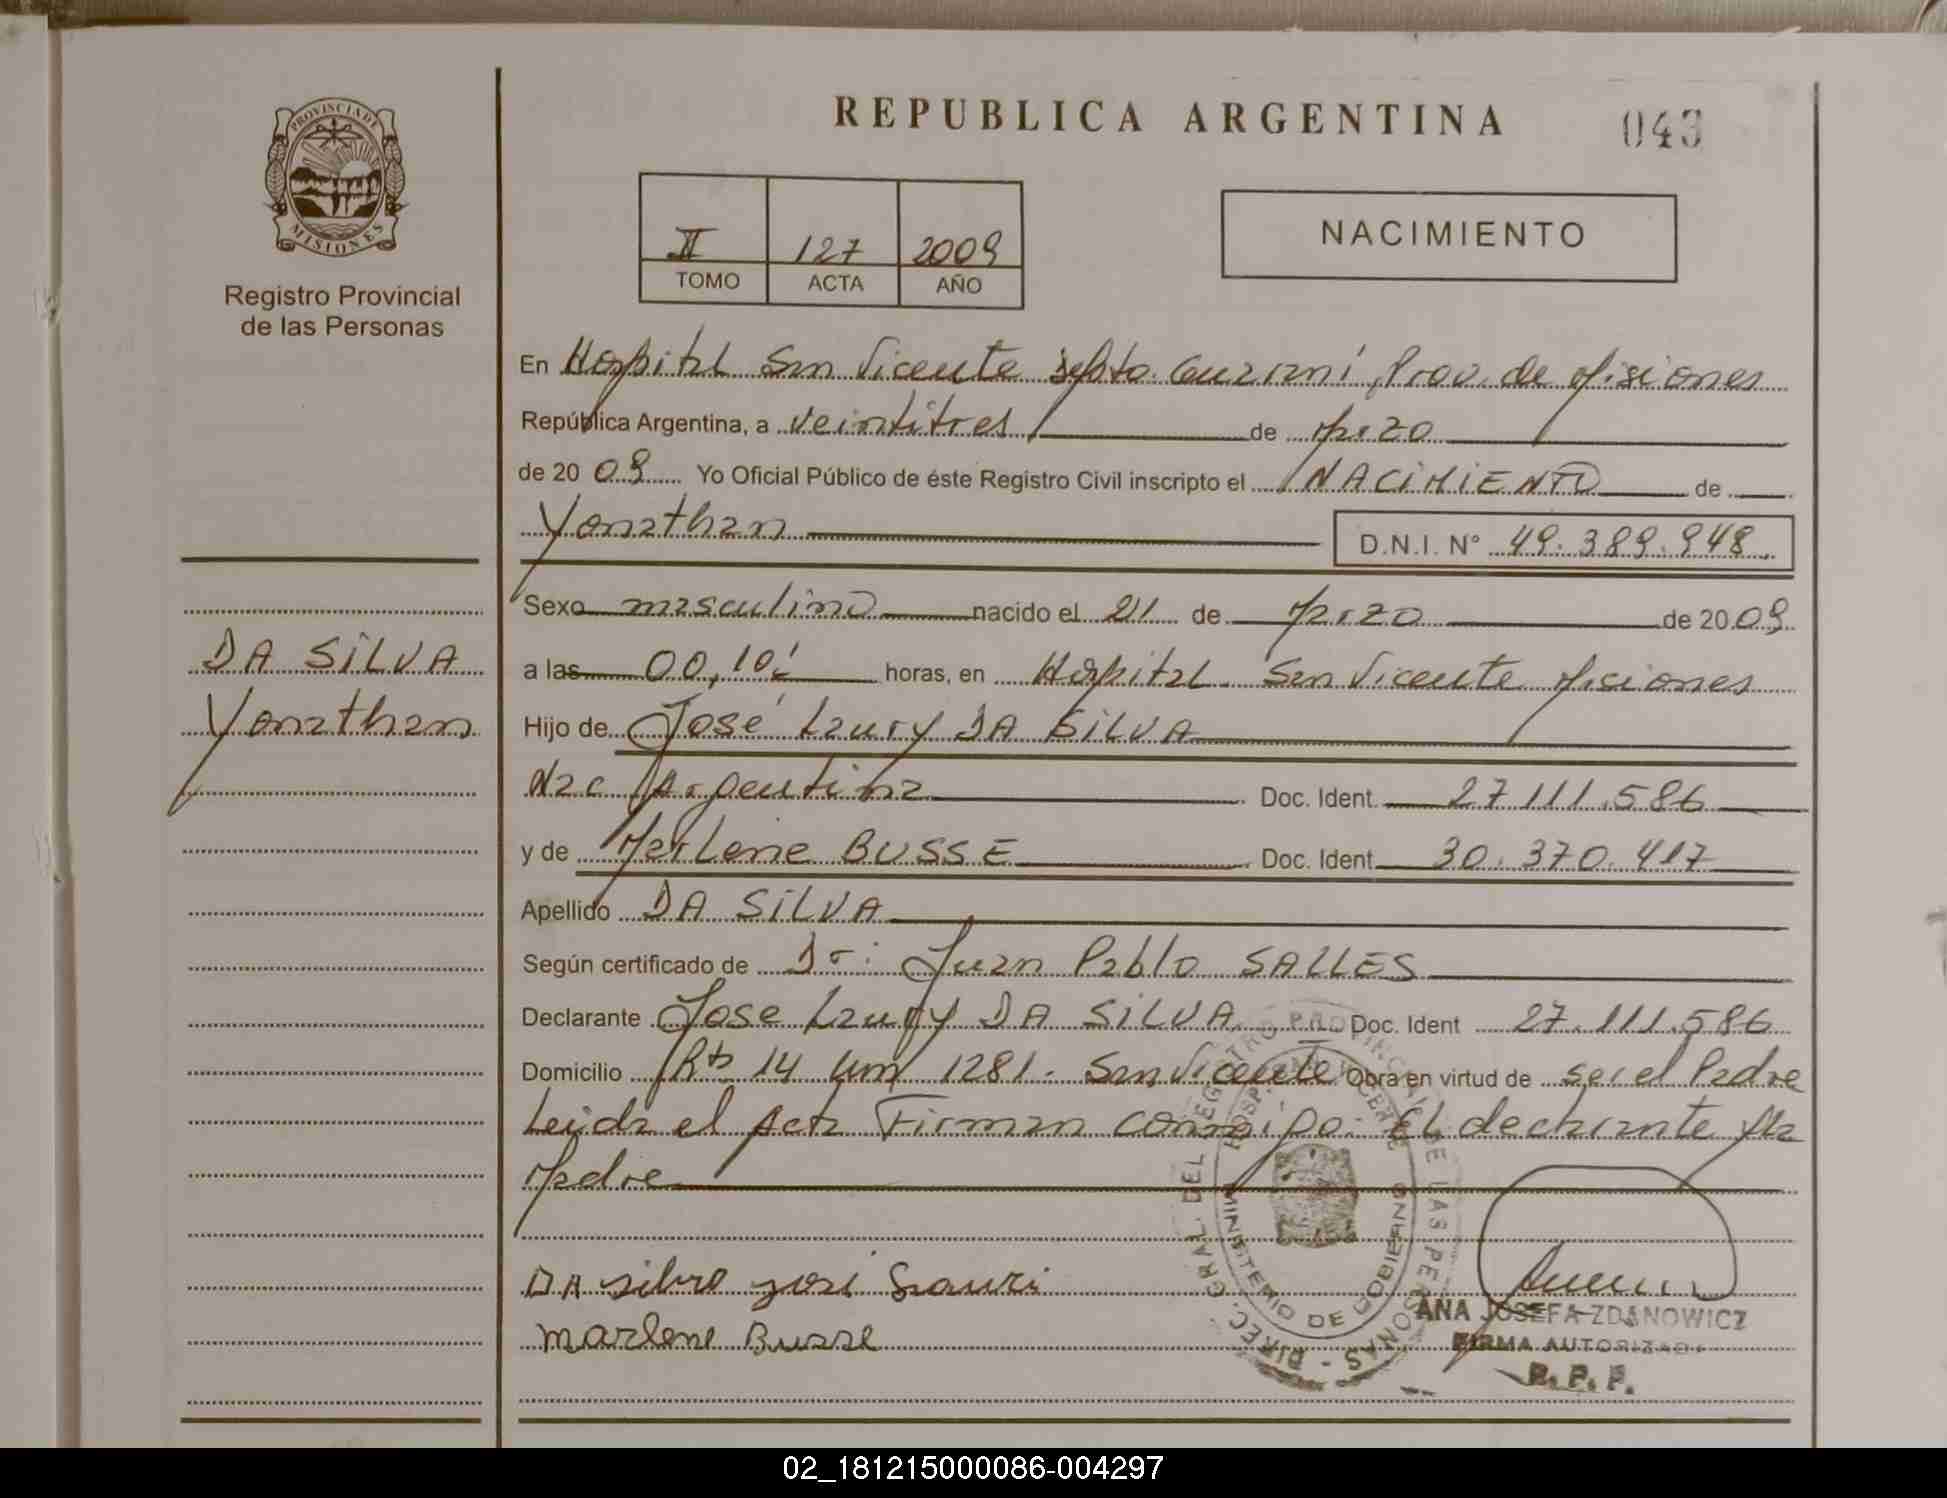 PROVINCIA DE
MISIONES
Registro Provincial
de las Personas
DA SILVA
Yonathan
REPUBLICA ARGENTINA
043
II 127 2009
TOMO ACTA AÑO
NACIMIENTO
En Hospital San Vicente Dpto. Guaraní, Prov. de Misiones
República Argentina, a veintitres de Marzo
de 20 09 Yo Oficial Público de éste Registro Civil inscripto el NACIMIENTO de
Yonathan D.N.I. N° 49.389.948.
Sexo masculino nacido el 21 de Marzo de 20 09
a las 00,10' horas, en Hospital San Vicente Misiones
Hijo de José Laury DA SILVA
Nac Argentina Doc. Ident. 27.111.586
y de Marlene BUSSE Doc. Ident. 30.370.417
Apellido DA SILVA
Según certificado de Dr: Juan Pablo SALLES
Declarante Jose Laury DA SILVA Doc. Ident 27.111.586
Domicilio Rta 14 Km 1281. San Vicente Obra en virtud de ser el Padre
Leida el Acta Firman conmigo. El declarante y la
Madre
DA silva josi Lauri
marlene Busse
DIREC. GRAL. DEL REGISTRO PROVINCIAL DE LAS PERSONAS -
HOSPITAL SAN VICENTE
MINISTERIO DE GOBIERNO
ANA JOSEFA ZDANOWICZ
FIRMA AUTORIZADA
R. P. P.
02_181215000086-004297